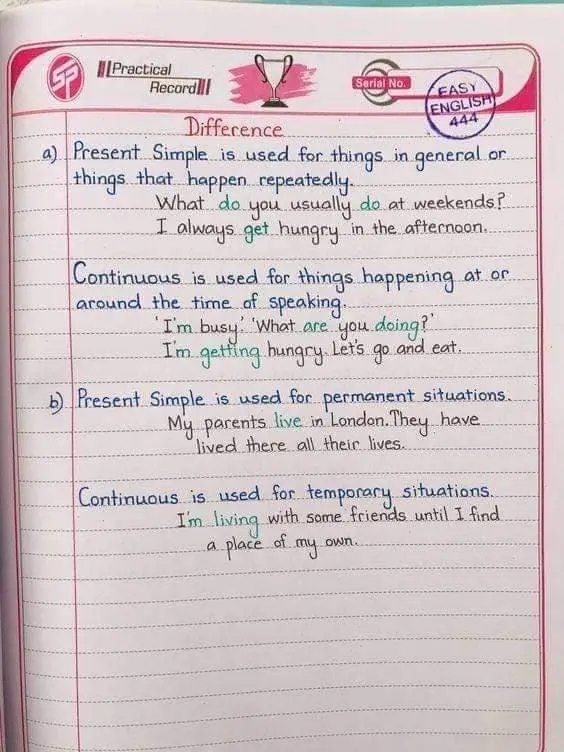 SP
Practical
Record
Serial No.
EASY
ENGLISH
444
Difference
a) Present Simple is used for things in general or
things that happen repeatedly.
What do you usually do at weekends?
I always get hungry in the afternoon.
Continuous is used for things happening at or
around the time of speaking.
'I'm busy.' 'What are you doing?'
I'm getting hungry. Let's go and eat.
b) Present Simple is used for permanent situations.
My parents live in London. They have
lived there all their lives.
Continuous is used for temporary situations.
I'm living with some friends until I find
a place of my own.